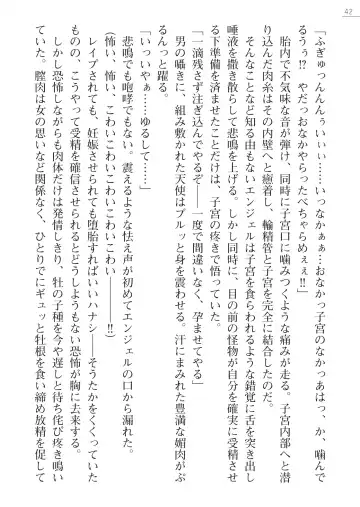 42
「ふぎゅっんんんぅいぃぃ……いっなかぁぁ……おなかっ子宮のなかっあはっ、か、噛んで
るうぅ!? やだっおなかやらったべちゃらめぇぇ!!」
胎内で不気味な音が弾け、同時に子宮口に噛みつくような痛みが走る。子宮内部へと潜
り込んだ肉糸がその内壁へと癒着し、輸精管と子宮を完全に結合したのだ。
そんなことなど知る由もないエンジェルは子宮を食らわれるような錯覚に舌を突き出し
唾液を撒き散らして悲鳴を上げる。しかし同時に、目の前の怪物が自分を確実に受精させ
る下準備を済ませたことだけは、子宮の疼きで悟っていた。
「一滴残さず注ぎ込んでやるぞ! 一度で間違いなく、孕ませてやる」
男の囁きに、組み敷かれた天使はブルッと身を震わせる。汗にまみれた豊満な媚肉がぷ
るんっと踊る。
「いっいやぁ……ゆるして……」
悲鳴でも咆哮でもない。震えるような怯え声が初めてエンジェルの口から漏れた。
(怖い、怖い、こわいこわいこわいこわい……!!)
レイプされても、妊娠させられても堕胎すればいいハナシ――そうたかをくくっていた
ものの、こうやって受精を確信させられるとどうしようもない恐怖が胸に去来する。
しかし恐怖しながらも肉体だけは発情しきり、牡の子種を今や遅しと待ち侘び疼き鳴い
ていた。膣肉は女の思いなど関係なく、ひとりでにギュッと牡根を食い締め放精を促して